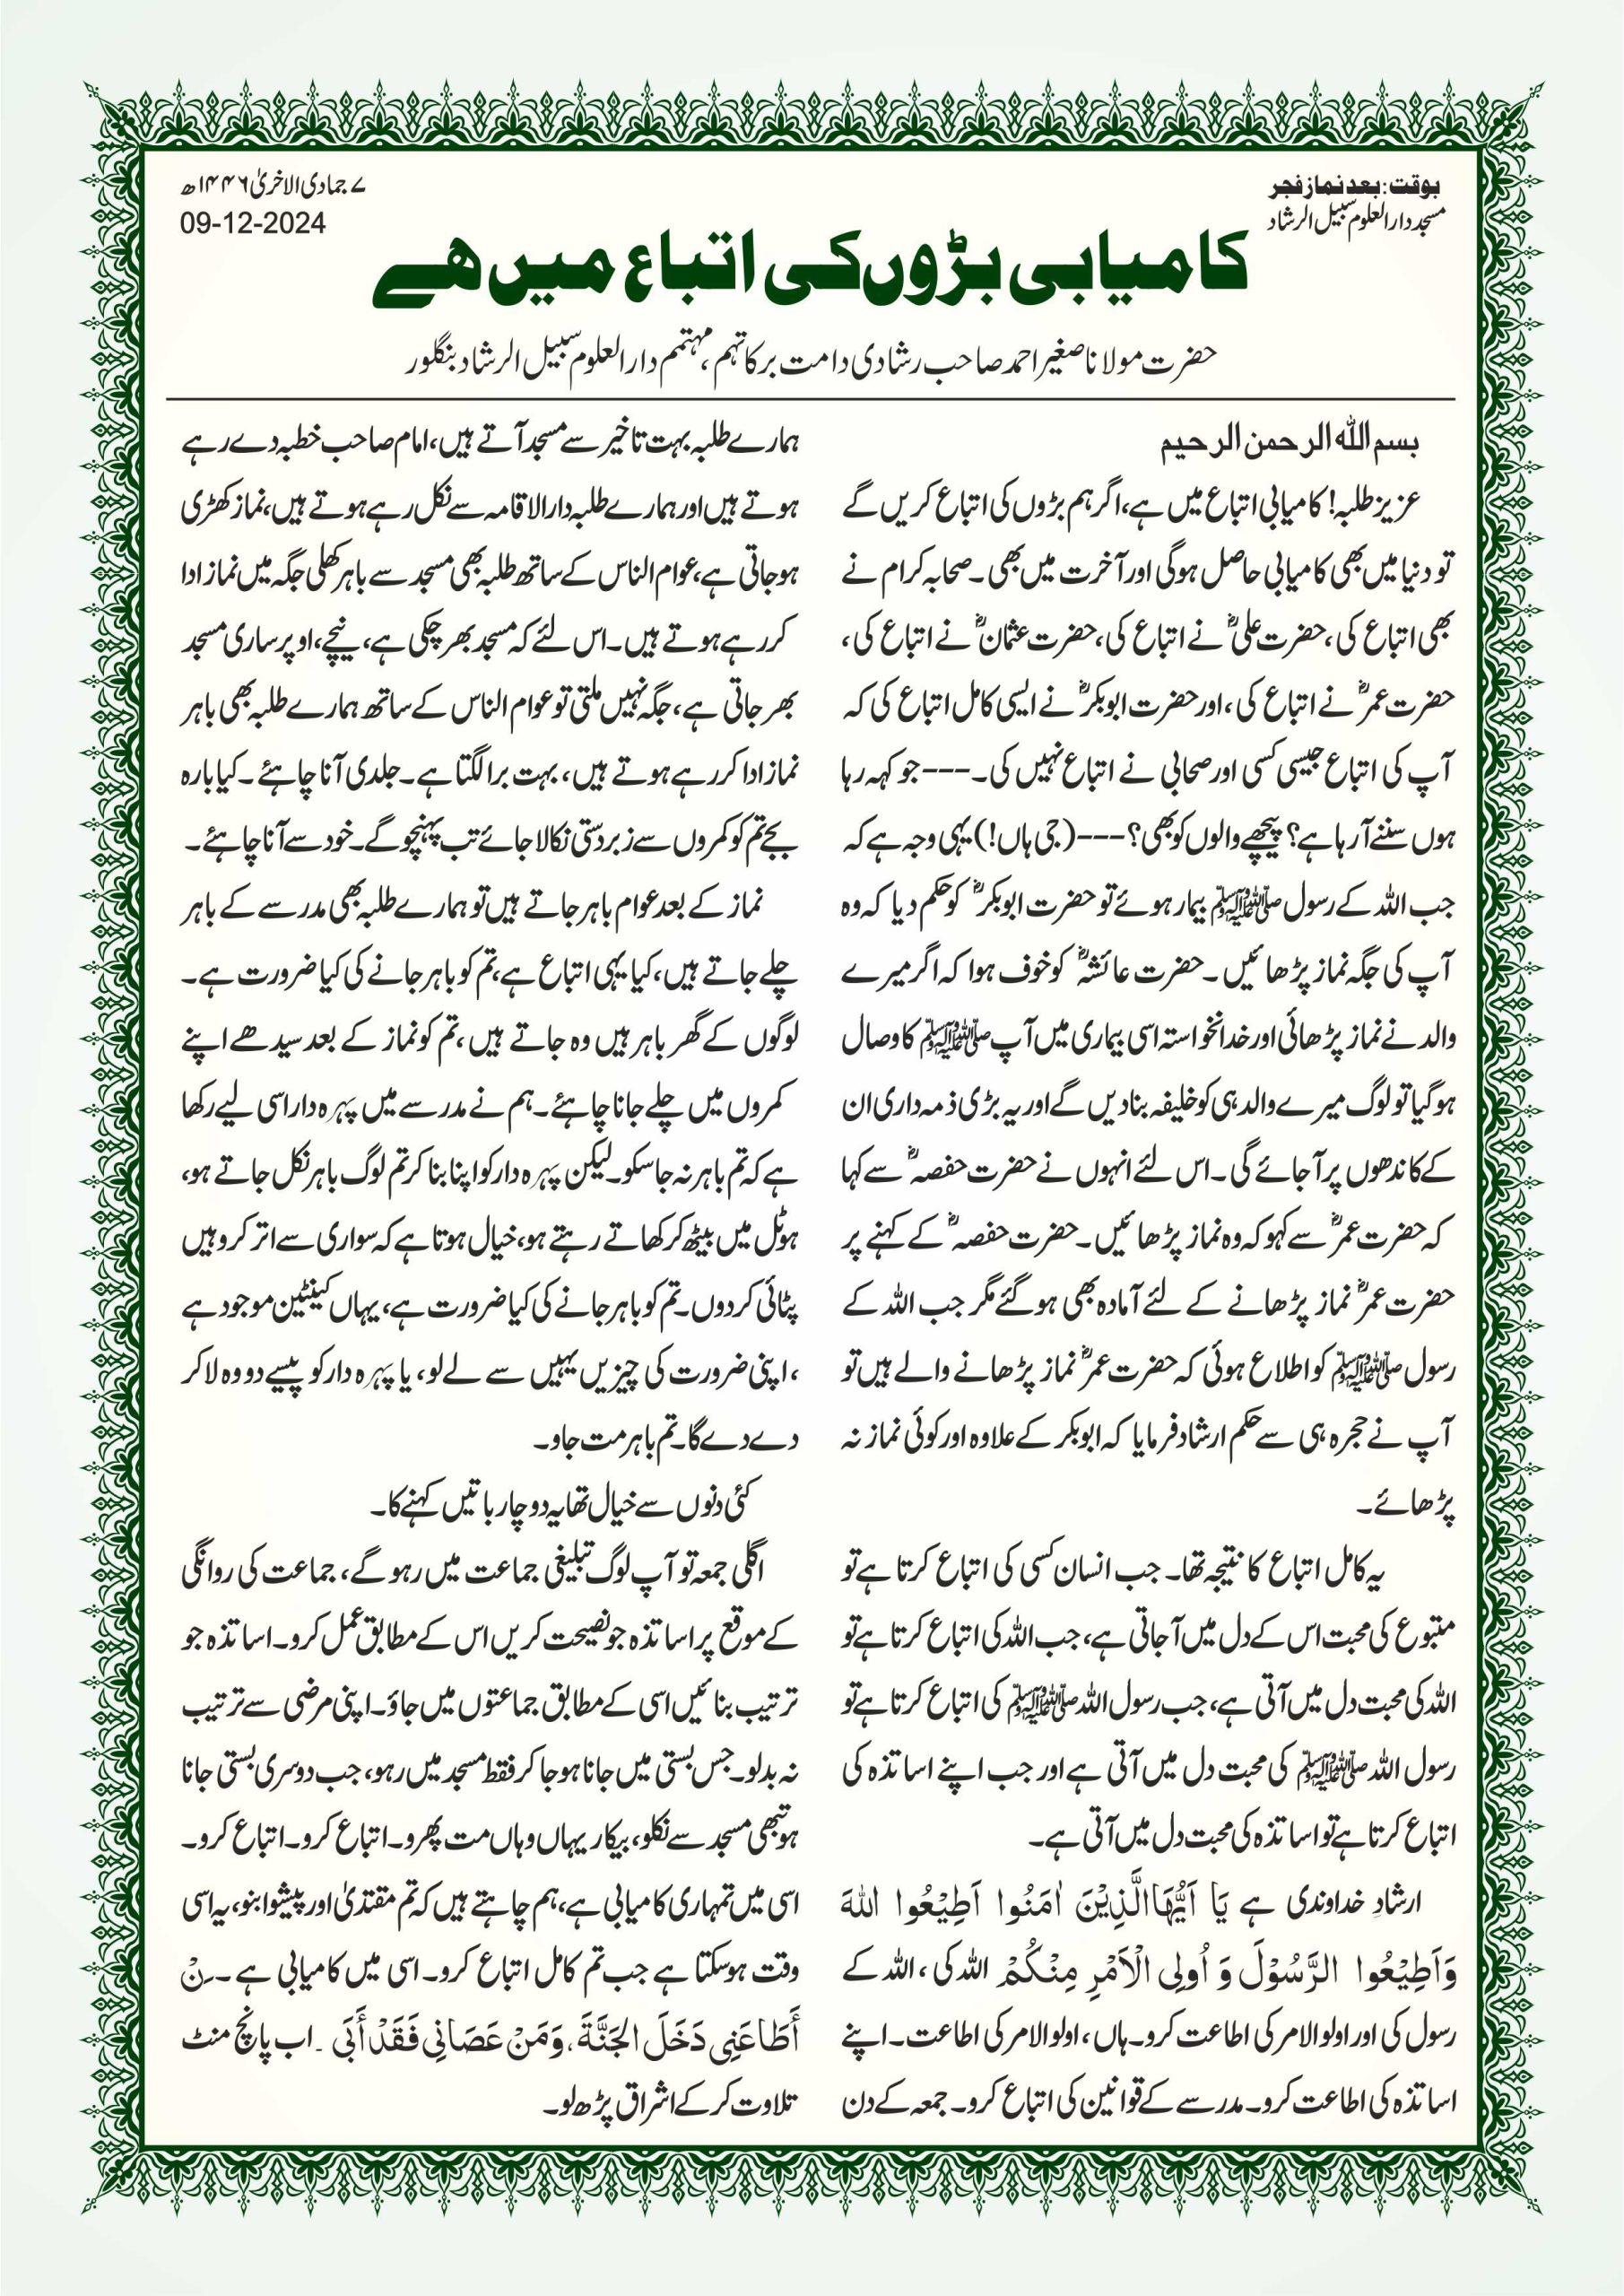 بوقت: بعد نماز فجر
مسجد دارالعلوم سبیل الرشاد
۷ جمادی الاخریٰ ۱۴۴۶ھ
09-12-2024
کامیابی بڑوں کی اتباع میں ھے
حضرت مولانا صغیر احمد صاحب رشادی دامت برکاتہم، مہتمم دارالعلوم سبیل الرشاد بنگلور
بسم اللہ الرحمن الرحیم
عزیز طلبہ! کامیابی اتباع میں ہے، اگر ہم بڑوں کی اتباع کریں گے
تو دنیا میں بھی کامیابی حاصل ہوگی اور آخرت میں بھی۔ صحابہ کرام نے
بھی اتباع کی، حضرت علیؓ نے اتباع کی، حضرت عثمانؓ نے اتباع کی،
حضرت عمرؓ نے اتباع کی، اور حضرت ابوبکرؓ نے ایسی کامل اتباع کی کہ
آپ کی اتباع جیسی کسی اور صحابی نے اتباع نہیں کی۔--- جو کہہ رہا
ہوں سننے آرہا ہے؟ پیچھے والوں کو بھی؟---(جی ہاں!) یہی وجہ ہے کہ
جب اللہ کے رسول ﷺ بیمار ہوئے تو حضرت ابوبکرؓ کو حکم دیا کہ وہ
آپ کی جگہ نماز پڑھائیں۔ حضرت عائشہؓ کو خوف ہوا کہ اگر میرے
والد نے نماز پڑھائی اور خدانخواستہ اسی بیماری میں آپ ﷺ کا وصال
ہوگیا تو لوگ میرے والد ہی کو خلیفہ بنادیں گے اور یہ بڑی ذمہ داری ان
کے کاندھوں پر آجائے گی۔ اس لئے انہوں نے حضرت حفصہؓ سے کہا
کہ حضرت عمرؓ سے کہو کہ وہ نماز پڑھائیں۔ حضرت حفصہؓ کے کہنے پر
حضرت عمرؓ نماز پڑھانے کے لئے آمادہ بھی ہوگئے مگر جب اللہ کے
رسول ﷺ کو اطلاع ہوئی کہ حضرت عمرؓ نماز پڑھانے والے ہیں تو
آپ نے حجرہ ہی سے حکم ارشاد فرمایا کہ ابوبکر کے علاوہ اور کوئی نماز نہ
پڑھائے۔
یہ کامل اتباع کا نتیجہ تھا۔ جب انسان کسی کی اتباع کرتا ہے تو
متبوع کی محبت اس کے دل میں آجاتی ہے، جب اللہ کی اتباع کرتا ہے تو
اللہ کی محبت دل میں آتی ہے، جب رسول اللہ ﷺ کی اتباع کرتا ہے تو
رسول اللہ ﷺ کی محبت دل میں آتی ہے اور جب اپنے اساتذہ کی
اتباع کرتا ہے تو اساتذہ کی محبت دل میں آتی ہے۔
ارشادِ خداوندی ہے یَا اَیُّهَا الَّذِیْنَ اٰمَنُوا اَطِیْعُوا اللهَ
وَاَطِیْعُوا الرَّسُوْلَ وَ اُولِی الْاَمْرِ مِنْکُمْ اللہ کی، اللہ کے
رسول کی اور اولوالامر کی اطاعت کرو۔ ہاں، اولوالامر کی اطاعت۔ اپنے
اساتذہ کی اطاعت کرو۔ مدرسے کے قوانین کی اتباع کرو۔ جمعہ کے دن
ہمارے طلبہ بہت تاخیر سے مسجد آتے ہیں، امام صاحب خطبہ دے رہے
ہوتے ہیں اور ہمارے طلبہ دارالاقامہ سے نکل رہے ہوتے ہیں، نماز کھڑی
ہوجاتی ہے، عوام الناس کے ساتھ طلبہ بھی مسجد سے باہر کھلی جگہ میں نماز ادا
کررہے ہوتے ہیں۔ اس لئے کہ مسجد بھر چکی ہے، نیچے، اوپر ساری مسجد
بھر جاتی ہے، جگہ نہیں ملتی تو عوام الناس کے ساتھ ہمارے طلبہ بھی باہر
نماز ادا کررہے ہوتے ہیں، بہت برا لگتا ہے۔ جلدی آنا چاہئے۔ کیا بارہ
بجے تم کو کمروں سے زبردستی نکالا جائے تب پہنچو گے۔ خود سے آنا چاہئے۔
نماز کے بعد عوام باہر جاتے ہیں تو ہمارے طلبہ بھی مدرسے کے باہر
چلے جاتے ہیں، کیا یہی اتباع ہے، تم کو باہر جانے کی کیا ضرورت ہے۔
لوگوں کے گھر باہر ہیں وہ جاتے ہیں، تم کو نماز کے بعد سیدھے اپنے
کمروں میں چلے جانا چاہئے۔ ہم نے مدرسے میں پہرہ دار اسی لیے رکھا
ہے کہ تم باہر نہ جاسکو۔ لیکن پہرہ دار کو اپنا بنا کر تم لوگ باہر نکل جاتے ہو،
ہوٹل میں بیٹھ کر کھاتے رہتے ہو، خیال ہوتا ہے کہ سواری سے اتر کر وہیں
پٹائی کردوں۔ تم کو باہر جانے کی کیا ضرورت ہے، یہاں کینٹین موجود ہے
، اپنی ضرورت کی چیزیں یہیں سے لے لو، یا پہرہ دار کو پیسے دو وہ لاکر
دے دے گا۔ تم باہر مت جاو۔
کئی دنوں سے خیال تھا یہ دو چار باتیں کہنے کا۔
اگلی جمعہ تو آپ لوگ تبلیغی جماعت میں رہو گے، جماعت کی روانگی
کے موقع پر اساتذہ جو نصیحت کریں اس کے مطابق عمل کرو۔ اساتذہ جو
ترتیب بنائیں اسی کے مطابق جماعتوں میں جاؤ۔ اپنی مرضی سے ترتیب
نہ بدلو۔ جس بستی میں جانا ہو جا کر فقط مسجد میں رہو، جب دوسری بستی جانا
ہو تبھی مسجد سے نکلو، بیکار یہاں وہاں مت پھرو۔ اتباع کرو۔ اتباع کرو۔
اسی میں تمہاری کامیابی ہے، ہم چاہتے ہیں کہ تم مقتدیٰ اور پیشوا بنو، یہ اسی
وقت ہوسکتا ہے جب تم کامل اتباع کرو۔ اسی میں کامیابی ہے۔
أَطَاعَنِی دَخَلَ الجَنَّةَ، وَمَنْ عَصَانِی فَقَدْ أَبَی ۔ اب پانچ منٹ
تلاوت کرکے اشراق پڑھ لو۔